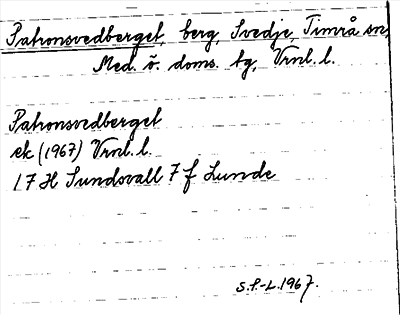 Patronsvedberget, berg, Svedje, Timrå sn,
Med. ö. doms. tg, Vrnl. l.
Patronsvedberget
ek (1967) Vrnl. l.
17 H Sundsvall 7 f Lunde
S.P.-L. 1967.